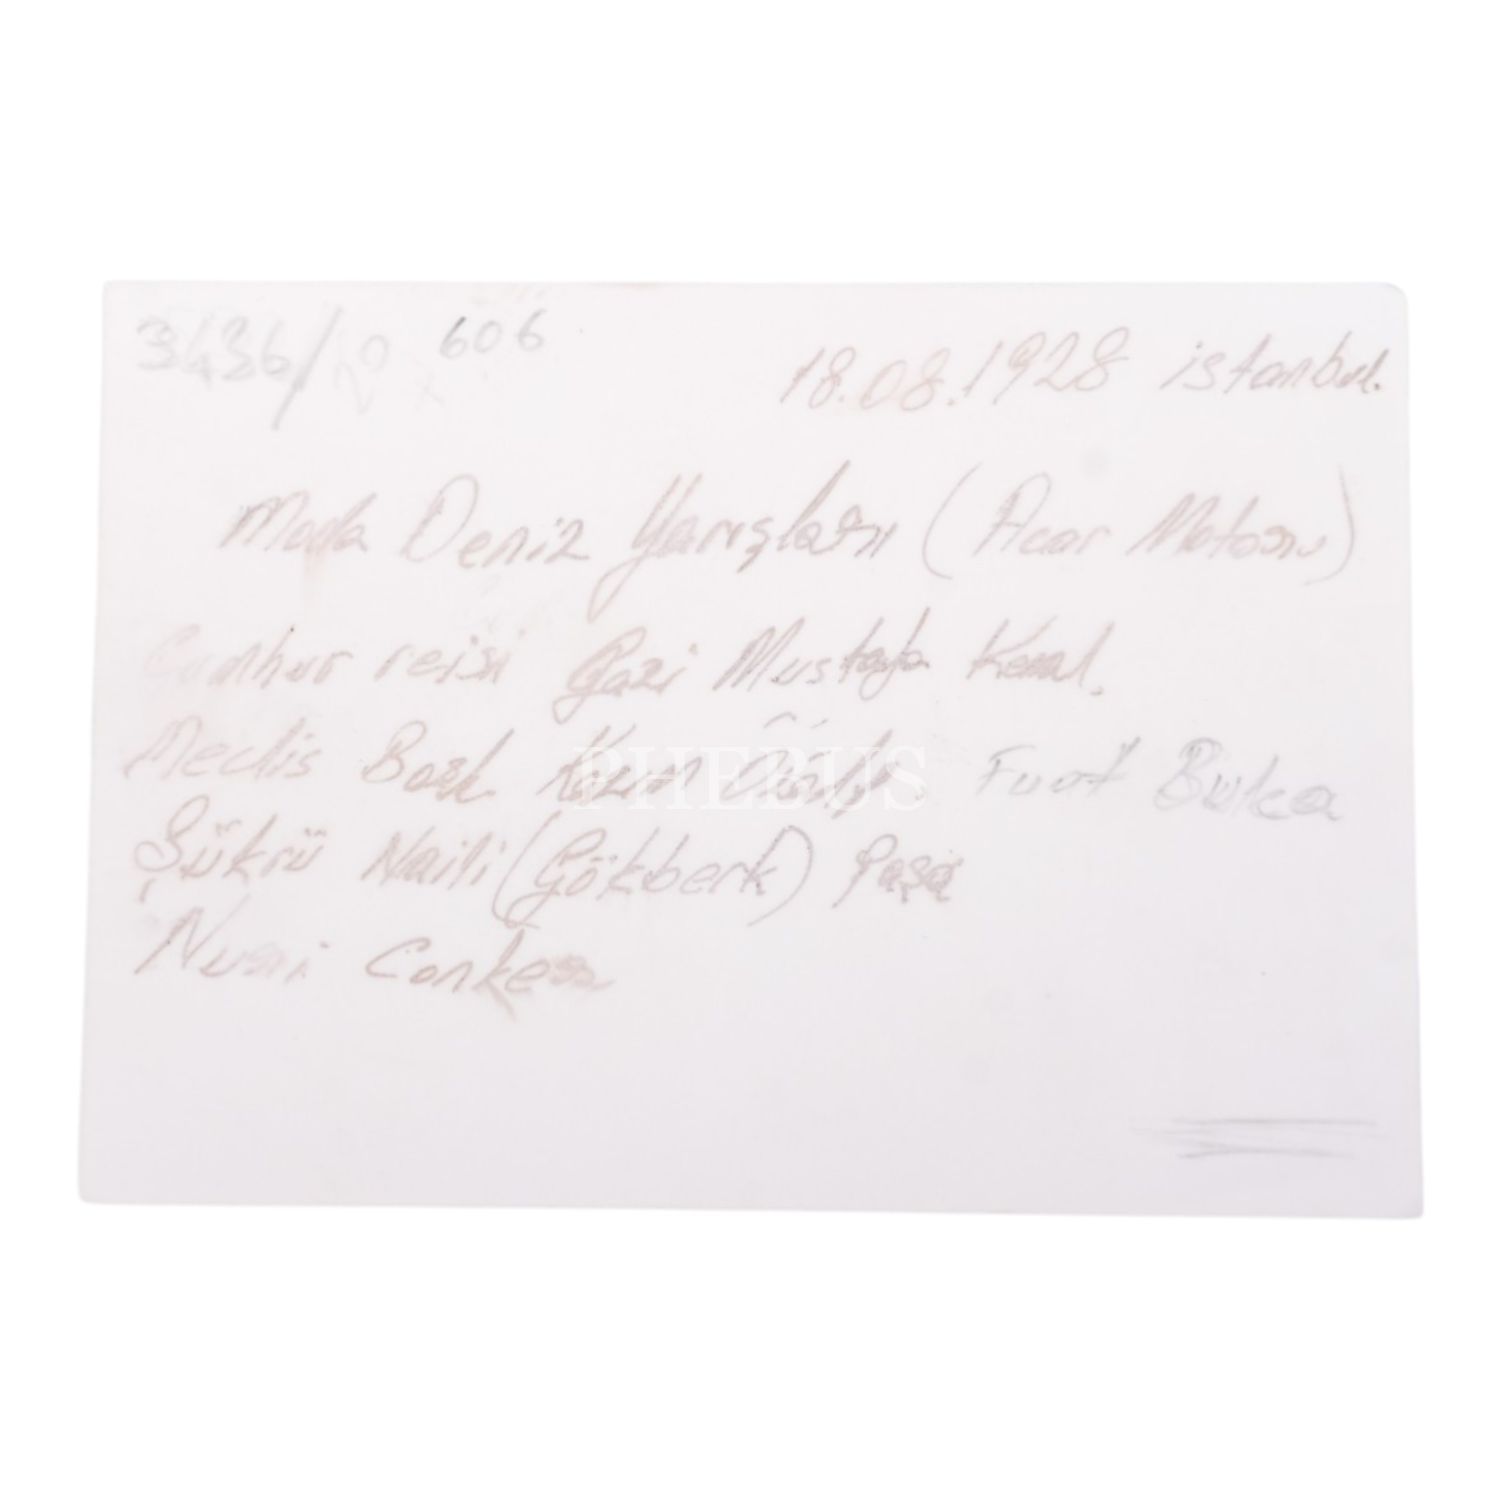 3436/20 606
18.08.1928 istanbul.
Moda Deniz Yarışları (Acar Motoru)
Cumhur reisi Gazi Mustafa Kemal.
Meclis Başk Kazım Özalp. Fuat Bulca
Şükrü Naili (Gökberk) Paşa
Nuri Conker
PHEBUS